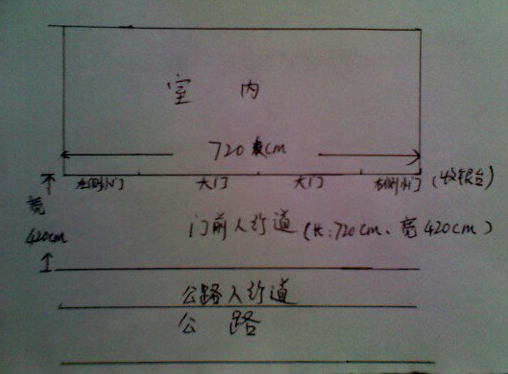 室 内
720 cm
左侧小门 大门 大门 右侧小门 (收银台)
宽
420cm
门前人行道 (长:720cm、宽420cm)
公路人行道
公 路